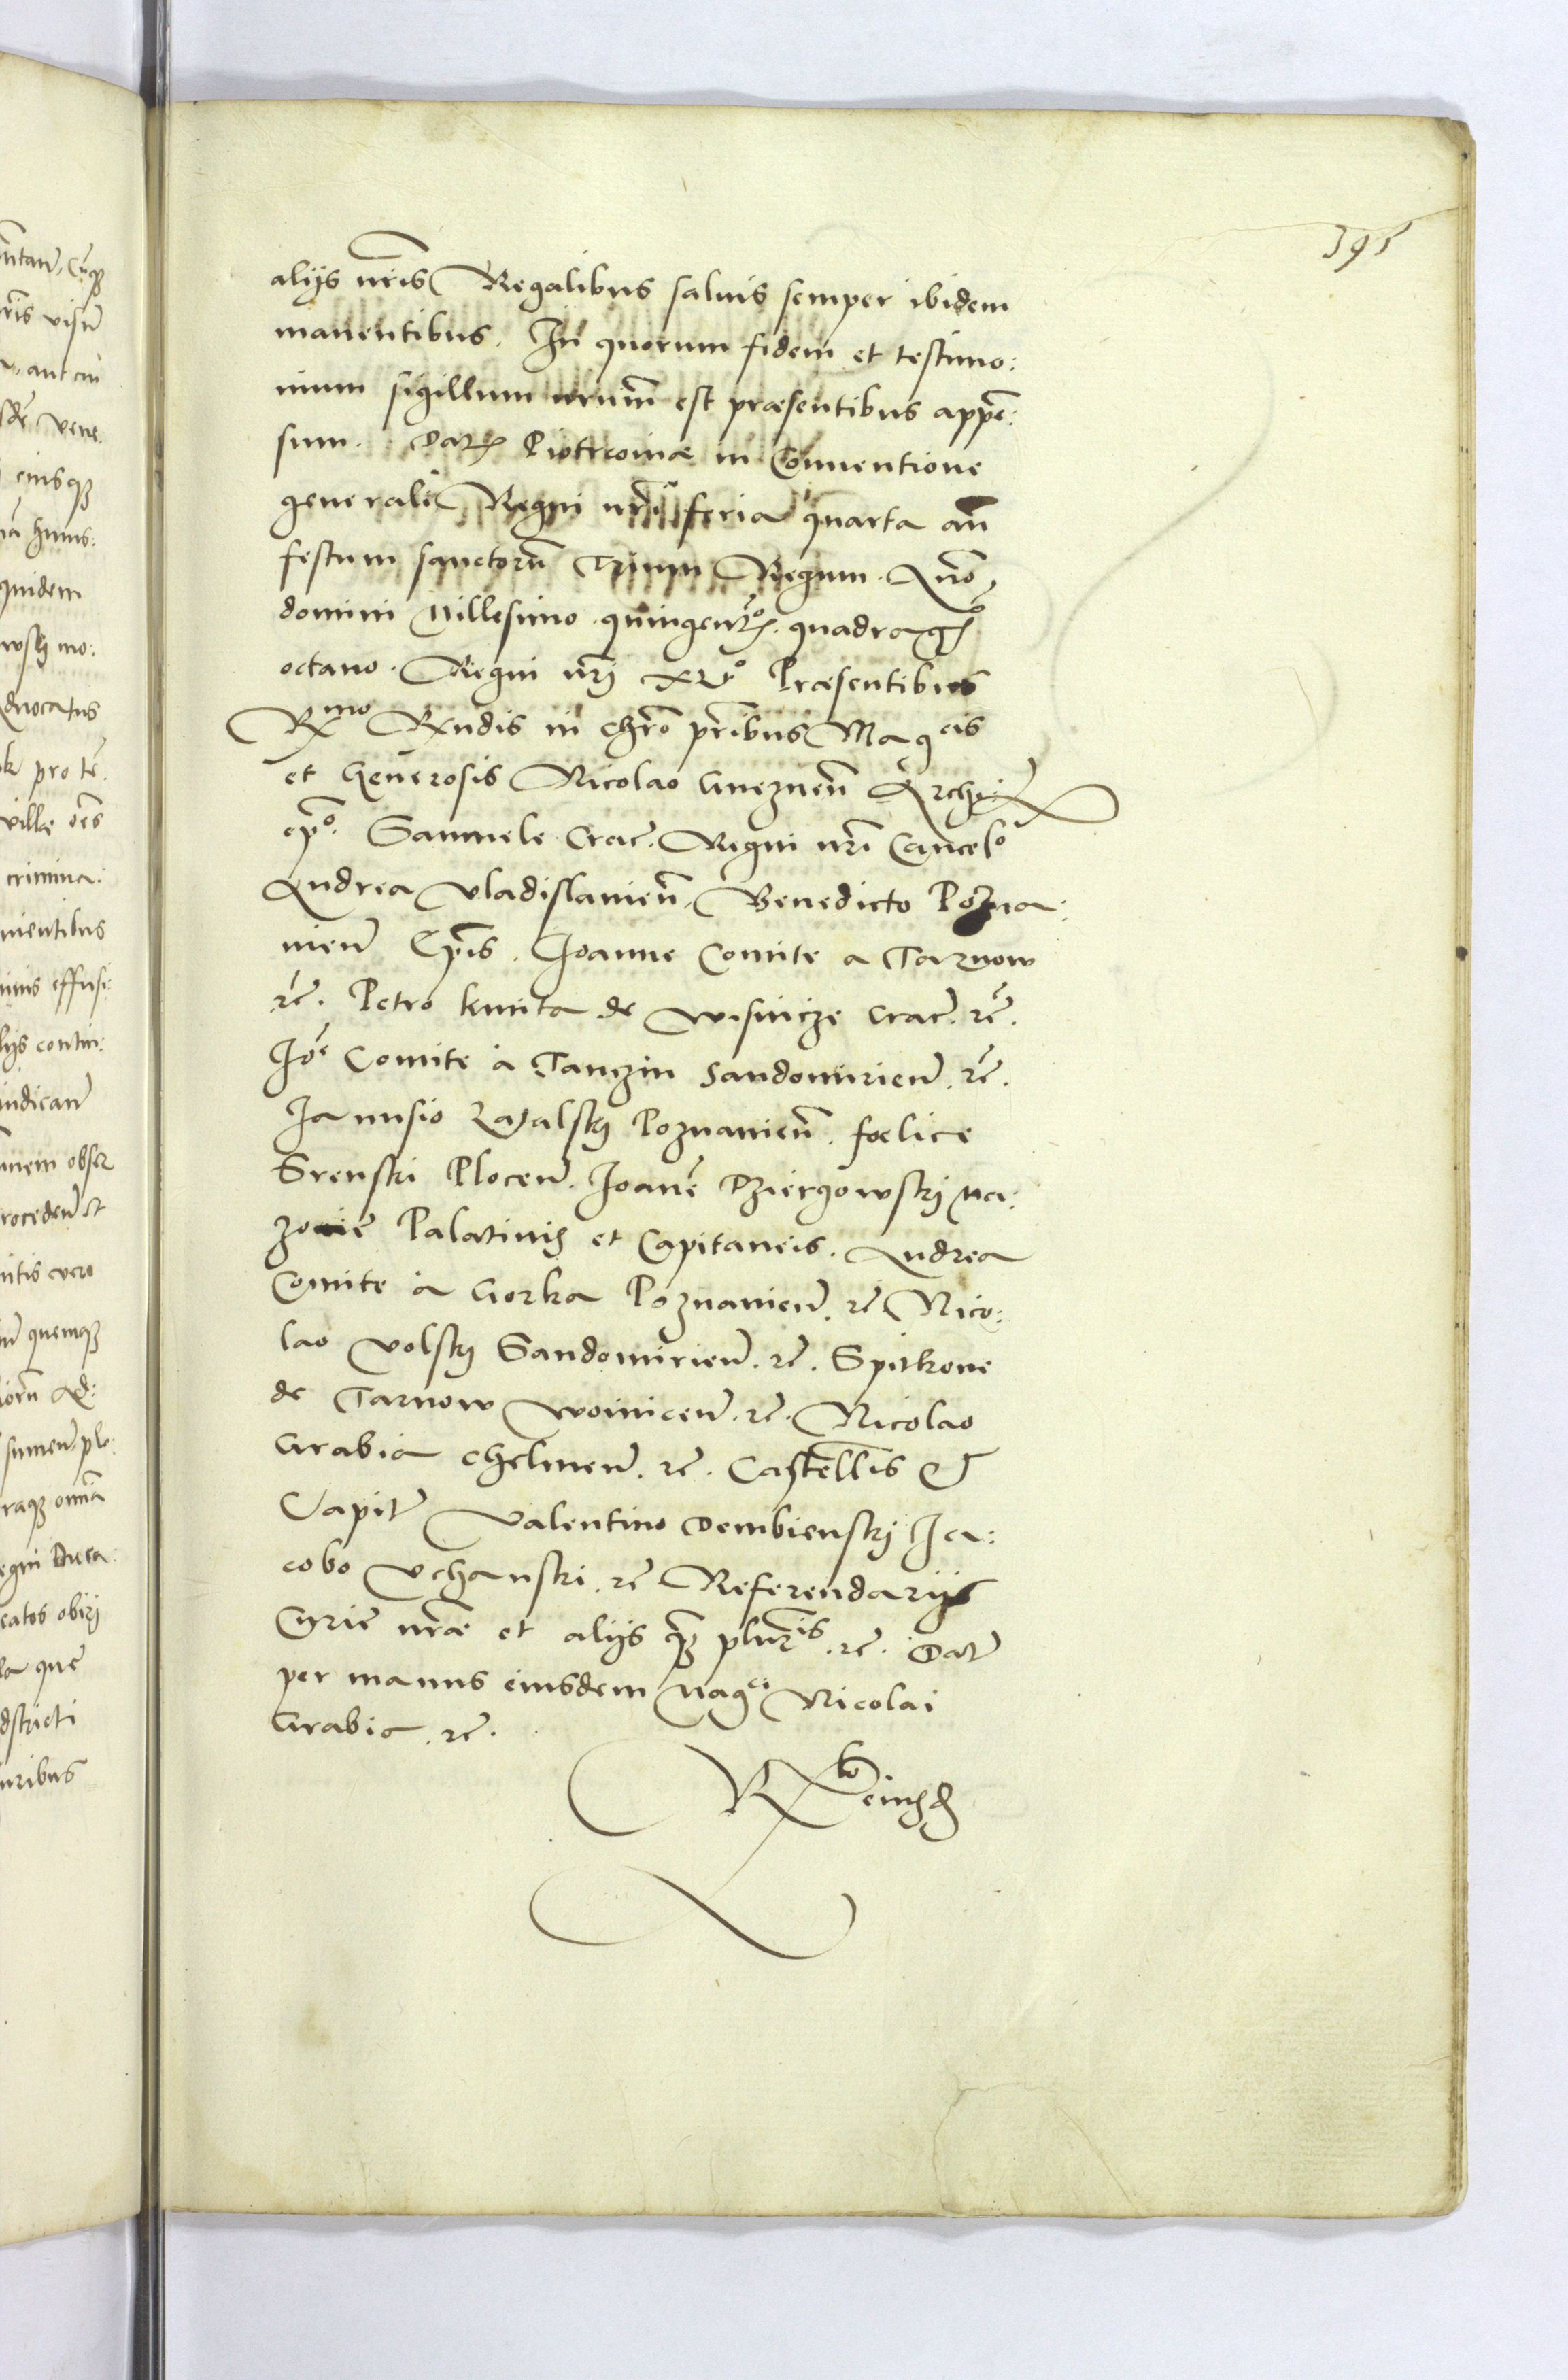 395
alijs nr̃is Regalibus saluis semper ibidem
manentibus. In quorum fidem et testimo:
nium sigillum nrum̃ est præsentibus appẽ:
sum. Dat Piotrcouiæ in Conuentione
generali Regni nr̃i feria quarta añ
festum sanctorũ Trium Regum. Anõ
domini Millesimo quingentos̃. quadrag
octauo. Regni nr̃j XLIIº Præsentibus
Rmo Rxndis in Chrõ pr̃ibus Magcis
et Generosis Nicolao Gneznen̄ Archi:
ep̃o. Samuele Crac̃. Regni nr̃i Cancelº
Andrea Vladislauien̄. Benedicto Pozna:
nien̄ Ep̃is. Joanne Comite a Tarnow
rẽ. Petro kmita de Wisnicze Crac̃. rẽ.
Joẽ Comite à Tanczin Sandomirien̄. rẽ.
Janusio Latalskj Poznanien̄. fœlice
Srenski Plocen̄. Joanẽ Dziergowskj Ma:
zouiẽ Palatinis et Capitaneis. Andrea
Comite à Gorka Poznanien̄. rẽ Nico:
lao Volskj Sandomirien̄. rẽ. Spitkone
de Tarnow Woinicen̄. rẽ. Nicolao
Grabia Chelmen̄. rẽ. Castellis et
Capit̃ Valentino Dembienskj Ja:
cobo Vchanski. rẽ Referendarijs
Curiẽ nr̃æ et alijs q̃ȝ plur̃is. rẽ. Dat̃
per manus eiusdem Magci Nicolai
Grabia. rẽ.
Rx eiusd